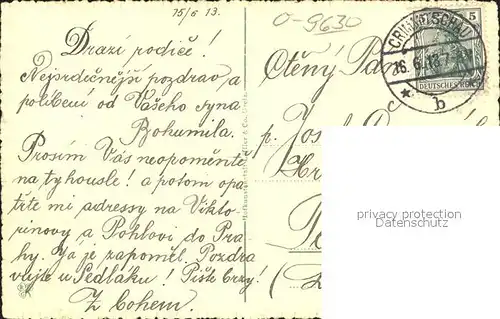 15/6 13.
O-9630
Drazí rodiče!
Nejsrdičnější pozdrav a
políbení od Vašeho syna
Bohumila.
Prosím Vás neopoměntě
na ty housle! a potom opa-
třte mi adressy na Vikto-
rinovy a Pohlovi do Pra-
hy. Já je zapoměl. Pozdra
vujte u Sedláku! Pište brzy!
Z Bohem.
Ctěný Pan
p. Josef
CRIMMITSCHAU
16.6.13.
* b c
5
DEUTSCHES REICH
privacy protection
Datenschutz